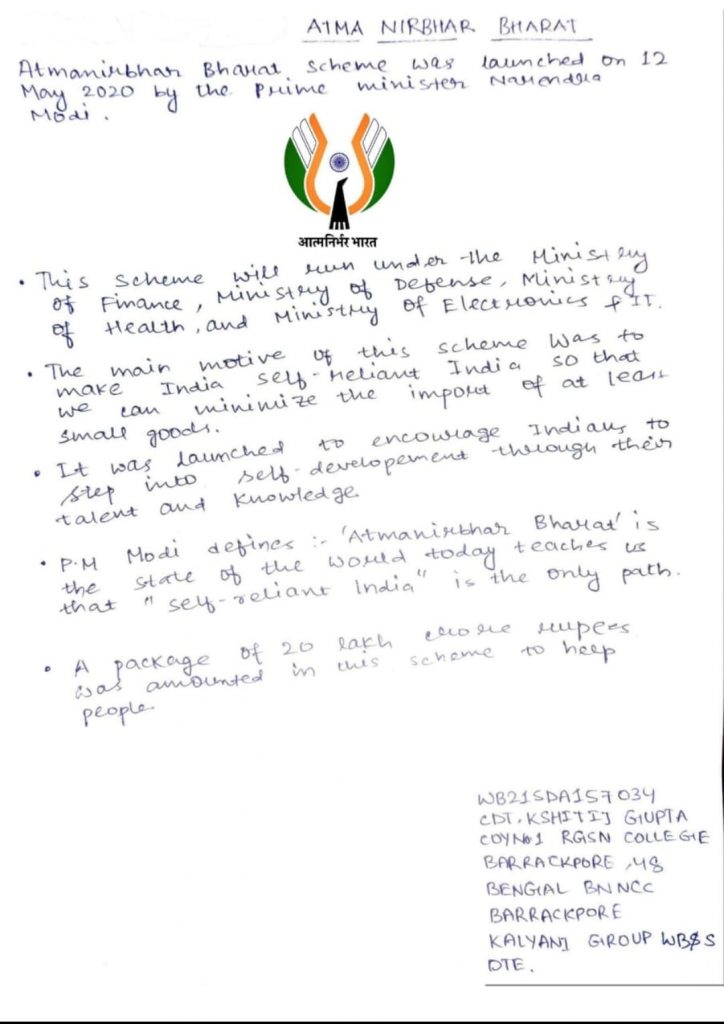 ATMA NIRBHAR BHARAT
Atmanirbhar Bharat scheme was launched on 12
May 2020 by the Prime minister Narendra
Modi.
आत्मनिर्भर भारत
• This scheme will run under the Ministry
of Finance, Ministry of Defense, Ministry
of Health, and Ministry of Electronics & IT.
• The main motive of this scheme was to
make India self-reliant India so that
we can minimize the import of at least
small goods.
• It was launched to encourage Indians to
step into self-developement through their
talent and knowledge.
• P.M Modi defines :- 'Atmanirbhar Bharat' is
the state of the world today teaches us
that "self-reliant India" is the only path.
• A package of 20 lakh crore rupees
was amounted in this scheme to help
people
WB21SDA157034
CDT. KSHITIJ GUPTA
COY No1 RGSN COLLEGE
BARRACKPORE, 48
BENGAL BN NCC
BARRACKPORE
KALYANI GROUP WB&S
DTE.